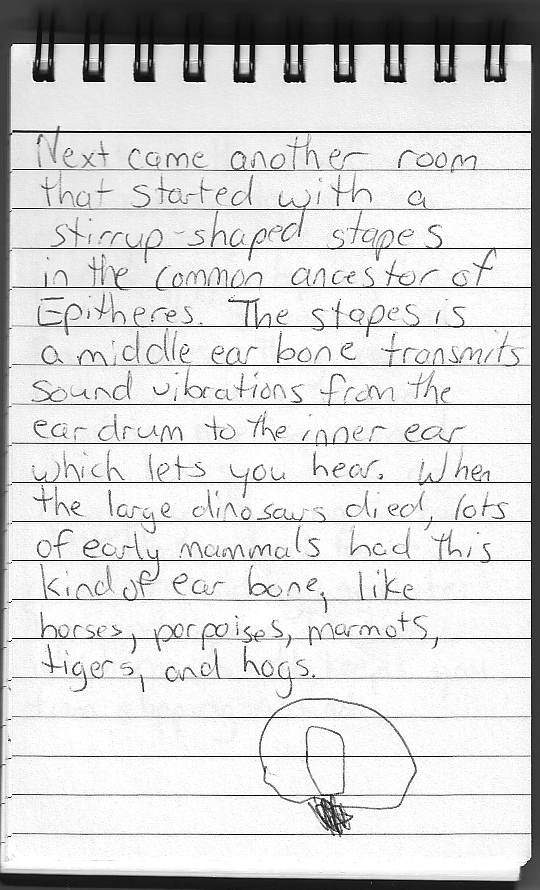 Next came another room
that started with a
stirrup-shaped stapes
in the common ancestor of
Epitheres. The stapes is
a middle ear bone transmits
sound vibrations from the
ear drum to the inner ear
which lets you hear. When
the large dinosaurs died, lots
of early mammals had this
kind of ear bone, like
horses, porpoises, marmots,
tigers, and hogs.